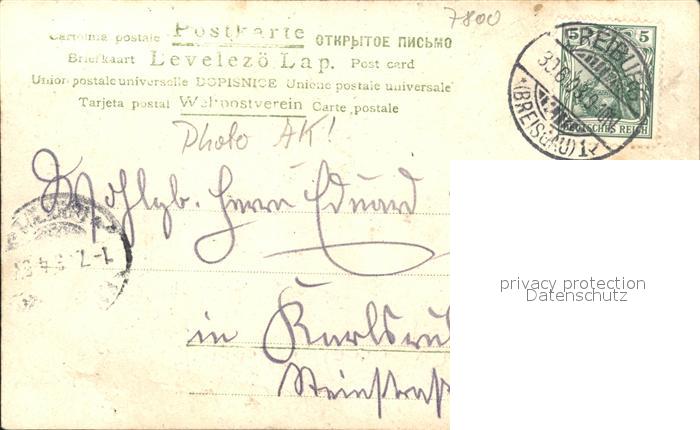 7800
Postkarte
Cartolina postale ОТКРЫТОЕ ПИСЬМО
Briefkaart Levelező Lap. Post card
Union postale universelle DOPISNICE Unione postale universale
Tarjeta postal Weltpostverein Carte postale
Photo AK!
5 5
DEUTSCHES REICH
FREIBURG
(BREISGAU) 1
Wohlgb. Herrn Eduard
in Karlsruh
Steinstraß
privacy protection
Datenschutz